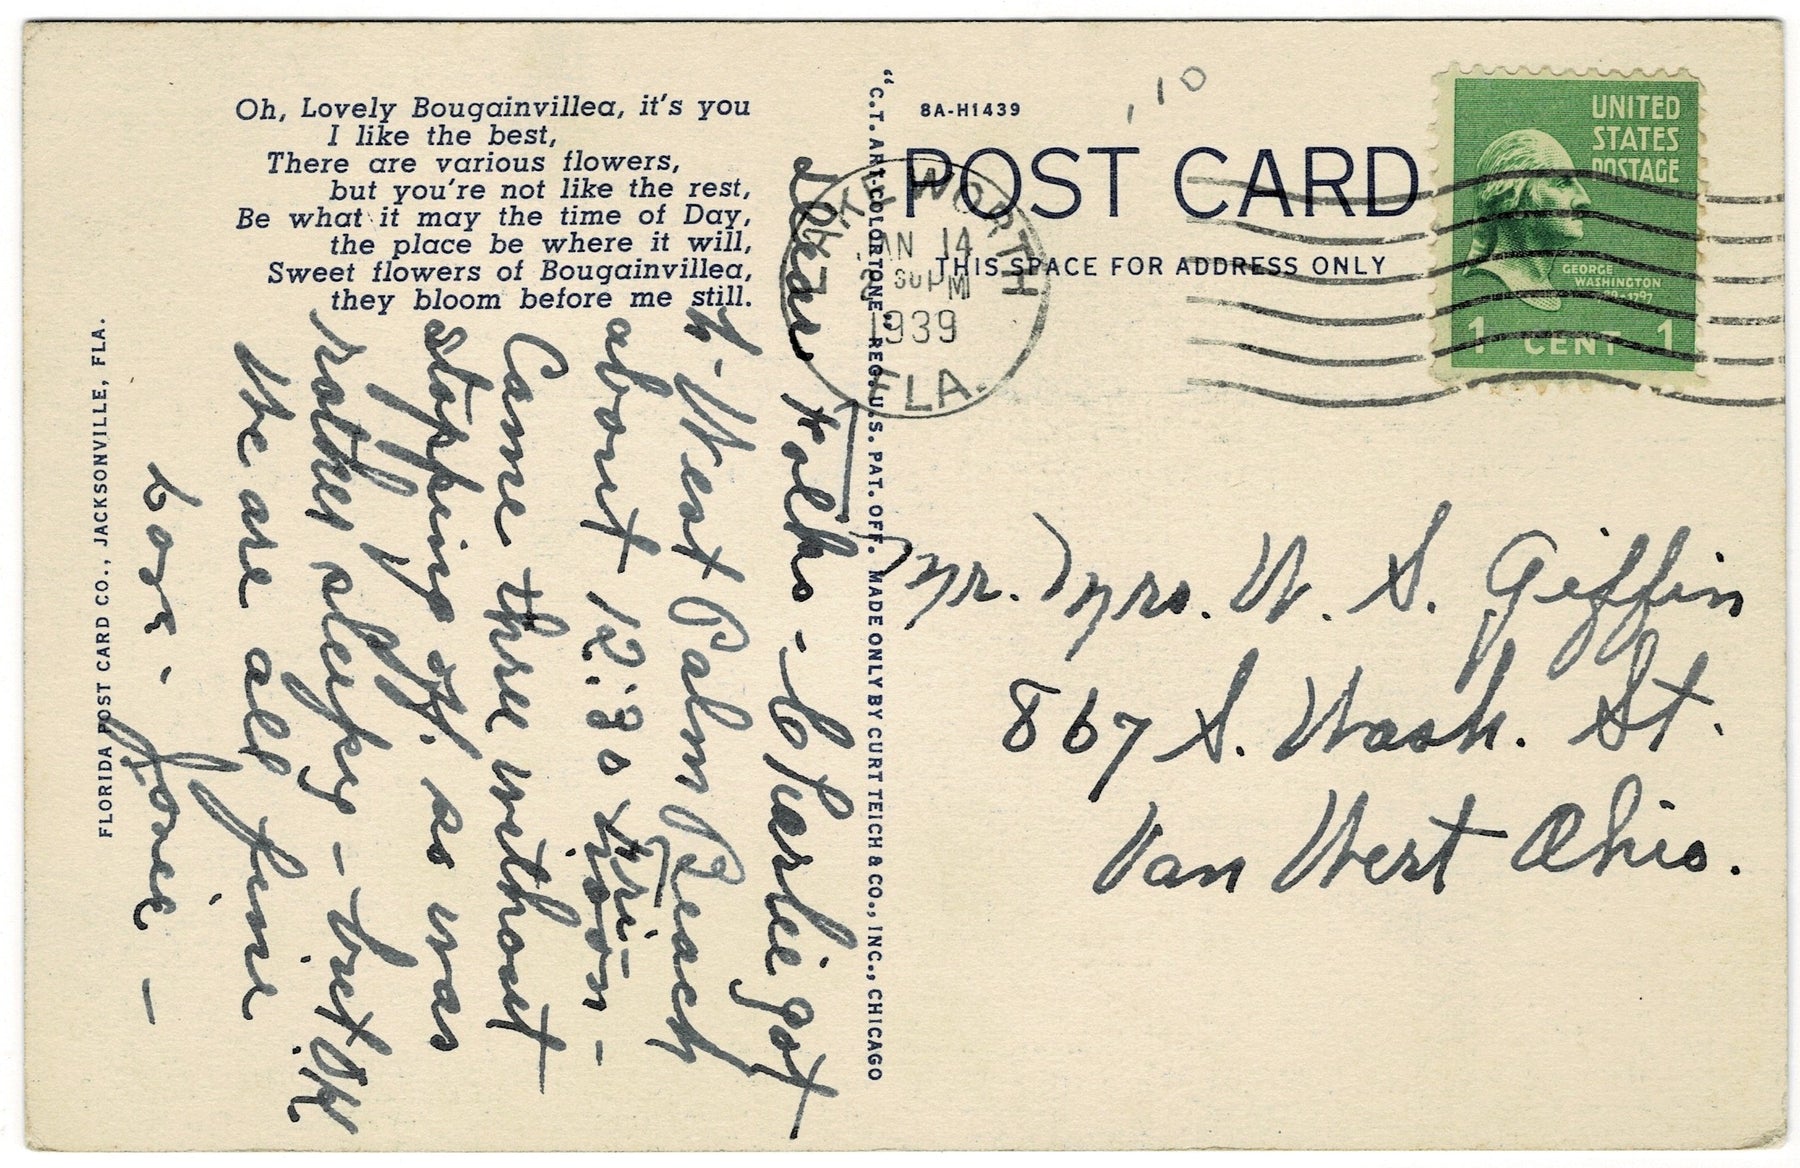 Oh, Lovely Bougainvillea, it's you
I like the best,
There are various flowers,
but you're not like the rest,
Be what it may the time of Day,
the place be where it will,
Sweet flowers of Bougainvillea,
they bloom before me still.
FLORIDA POST CARD CO., JACKSONVILLE, FLA.
Dear Folks - Charlie got
to West Palm Beach
about 12:30 Fri-
noon -
Came thru without
stopping off. so was
rather sleepy - but OK
We are all fine
Love - Jane -
"C.T. ART-COLORTONE" REG. U.S. PAT. OFF. MADE ONLY BY CURT TEICH & CO., INC., CHICAGO
8A-H1439
,10
POST CARD
THIS SPACE FOR ADDRESS ONLY
LAKE WORTH
JAN 14
30 PM
1939
FLA.
UNITED
STATES
POSTAGE
GEORGE
WASHINGTON
1 CENT 1
Mr. Mrs. W. S. Giffin
867 S. Wash. St.
Van Wert Ohio.